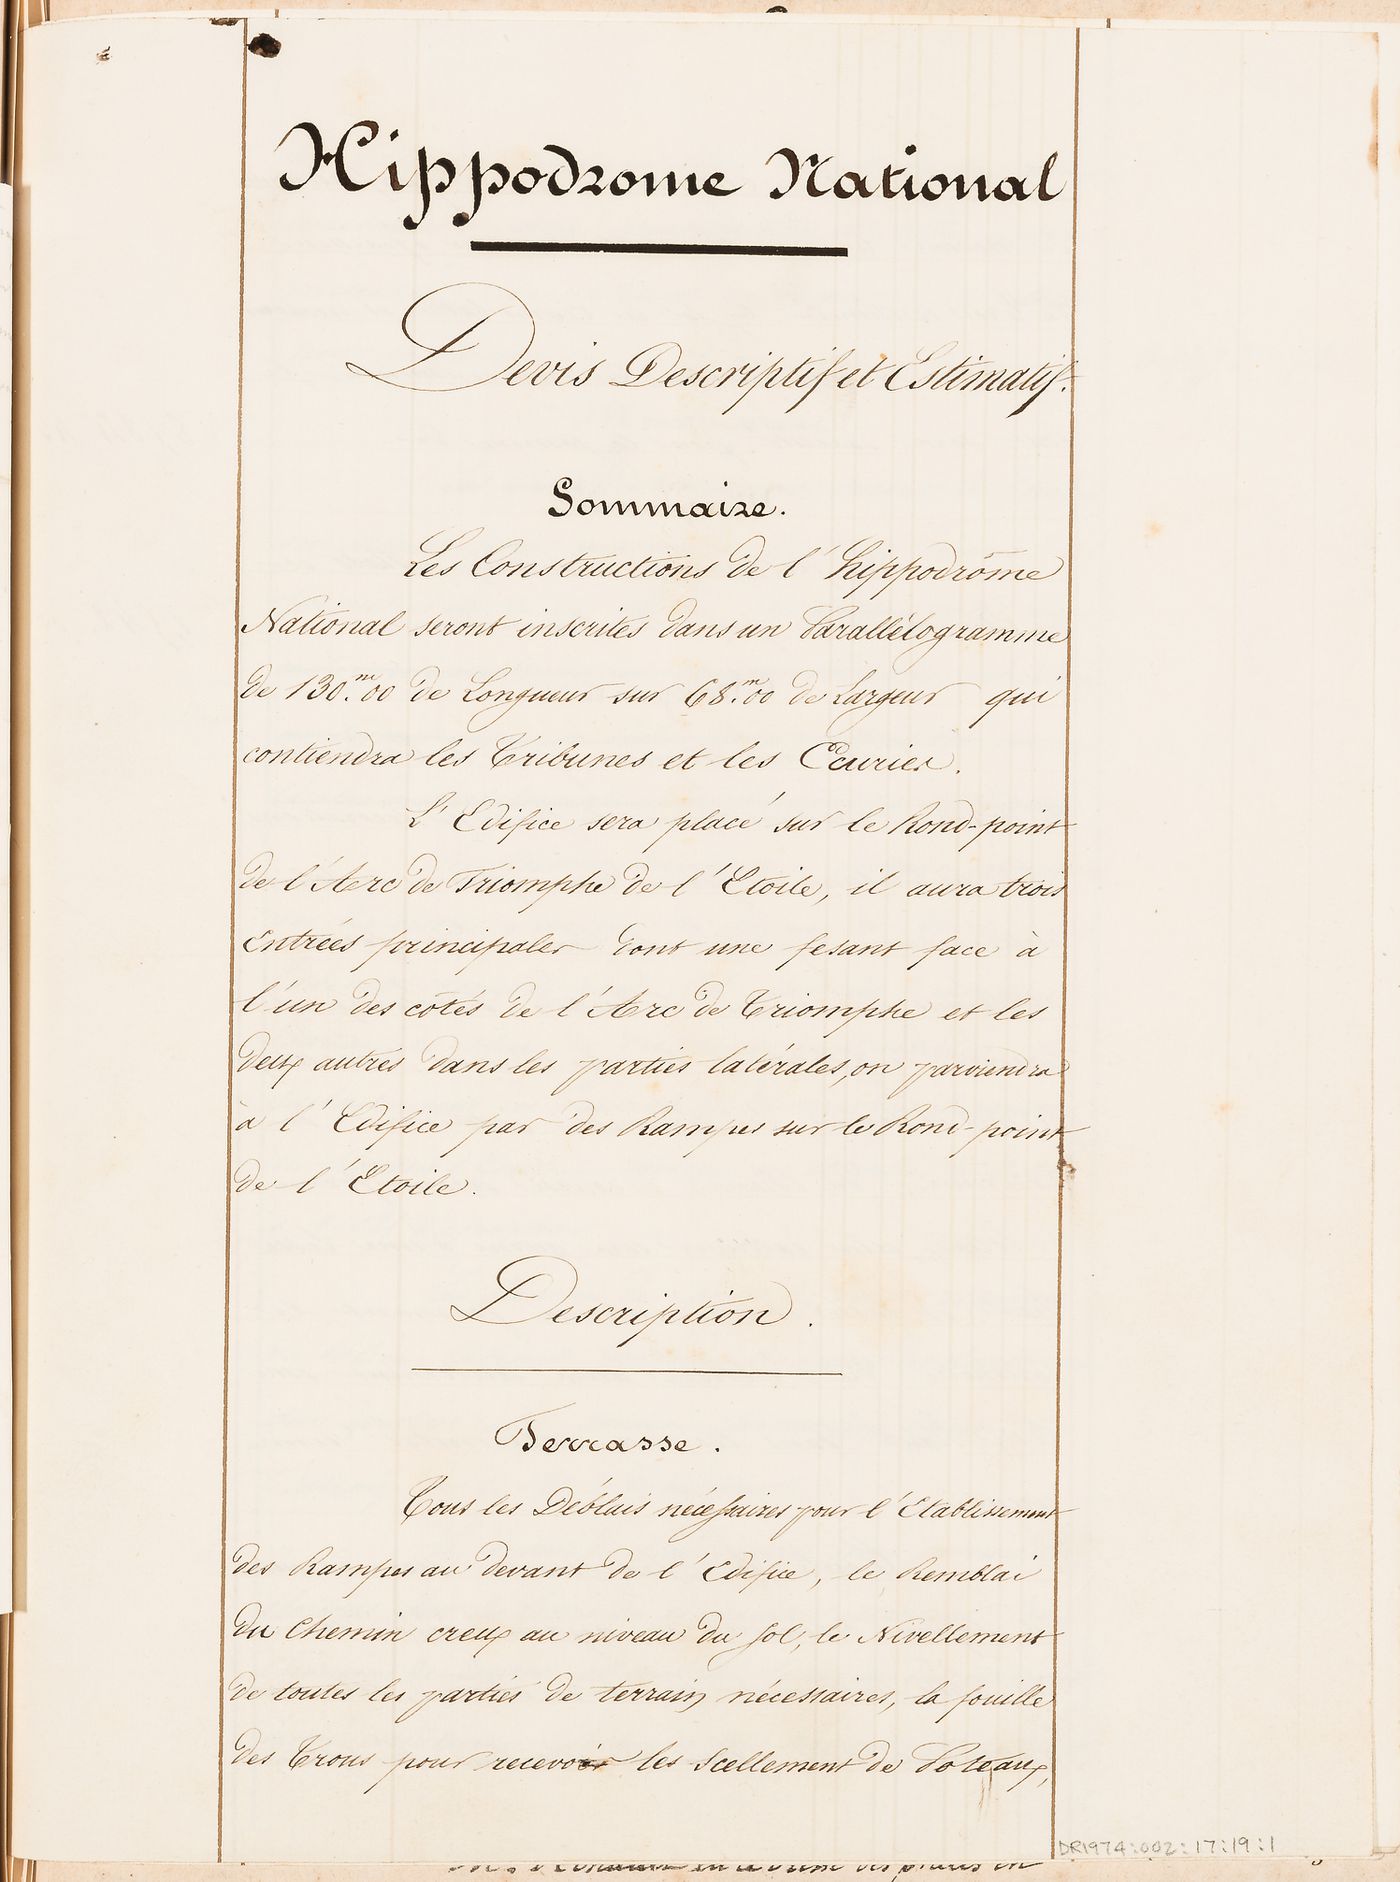 Hippodrome National
Devis Descriptif et Estimatif.
Sommaire.
Les Constructions de l'hippodrôme
National seront inscrites dans un Parallélogramme
de 130.m00 de Longueur sur 68.m00 de Largeur qui
contiendra les Tribunes et les Ecuries.
L'Edifice sera placé sur le Rond-point
de l'Arc de Triomphe de l'Etoile, il aura trois
entrées principales dont une fesant face à
l'un des côtés de l'Arc de Triomphe et les
deux autres dans les parties latérales, on parviendra
à l'Edifice par des Rampes sur le Rond-point
de l'Etoile.
Description.
Terrasse.
Tous les Déblais nécessaires pour l'Etablissement
des Rampes au devant de l'Edifice, le Remblai
du Chemin creux au niveau du sol, le Nivellement
de toutes les parties de terrain nécessaires, la fouille
des Trous pour recevoir les scellement de Poteaux,
DR1974:002:17:19:1